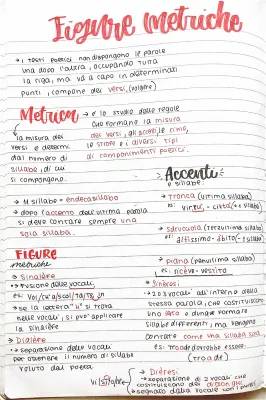 Figure metriche
→ i testi poetici non dispongono le parole
una dopo l'altra, occupando tutta
la riga, ma va a capo in determinati
punti, compone dei versi, (volgere)
Metrica → è lo studio delle regole
che formano la misura
dei versi, gli accenti, le rime,
le strofe e i diversi tipi
di componimenti poetici.
la misura dei
versi è determi
dal numero di
sillabe, di cui
si compongono.
Accenti
sillabe:
→ 11 sillabe = endecasillabo
→ dopo l'accento dell'ultima parola
si deve contare sempre una
sola sillaba.
→ tronca (ultima sillaba)
es: virtù, - città
→ sdrucciola (terzultima sillaba)
es: altissimo - àbito
→ piana (penultima sillaba)
es: riceve - vestito
FIGURE
metriche
→ Sinalefe
→ fusione delle vocali
→ se la lettera "h" si trova
nelle vocali, si può applicare
la sinalefe
→ Dialefe
→ separazione delle vocali
per ottenere il numero di sillabe
voluto dal poeta
Sineresi:
→ 2 o 3 vocali all'interno della
stessa parola, che costituiscono
uno iato e dunque formano
sillabe differenti, ma vengono
contate come una sillaba sola
→ Dieresi:
→ separazione di 2 vocali che
costituiscono dei dittonghi,
segnato dalla vocale con i punti